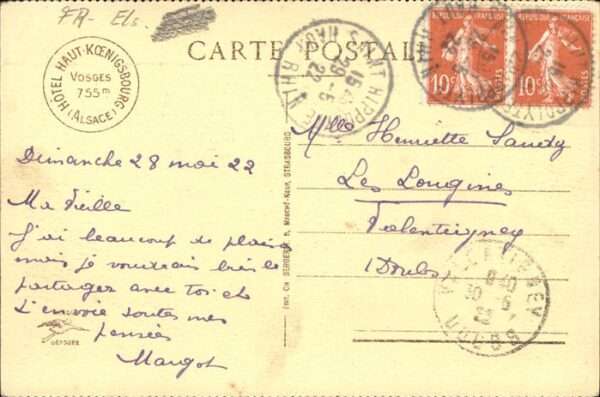 FR- Els.
CARTE POSTALE
HÔTEL HAUT-KŒNIGSBOURG
VOSGES
755m
(ALSACE)
SAINT HIPPOLYTE
15
29 - 5
22
HAUT RHIN
REPUBLIQUE FRANÇAISE
10c
REPUBLIQUE FRANÇAISE
10c
Dimanche 28 mai 22
Ma Vieille
J'ai beaucoup de plaisir
mais je voudrais bien le
partager avec toi et
t'envoie toutes mes
pensées
Margot
Mlle Henriette
Les Longines
Valentigney
Doubs
VALENTIGNEY
8 40
30 - 5
22
DOUBS